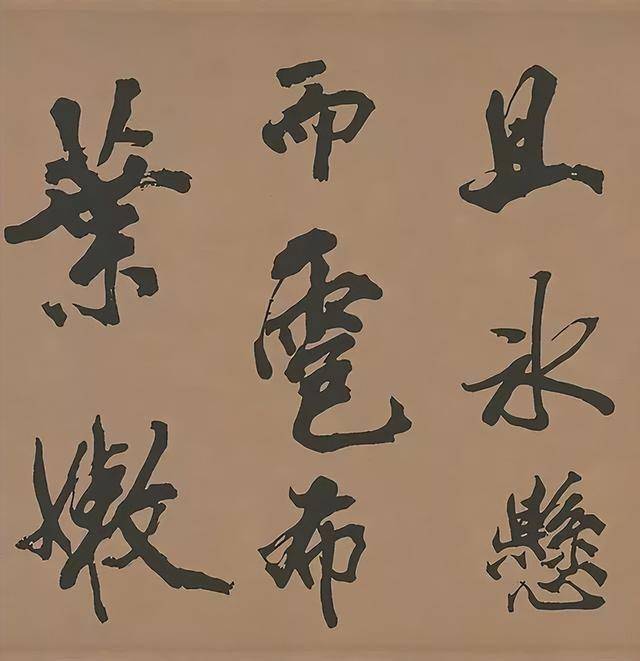 且冰懸
而雹布
葉嫩